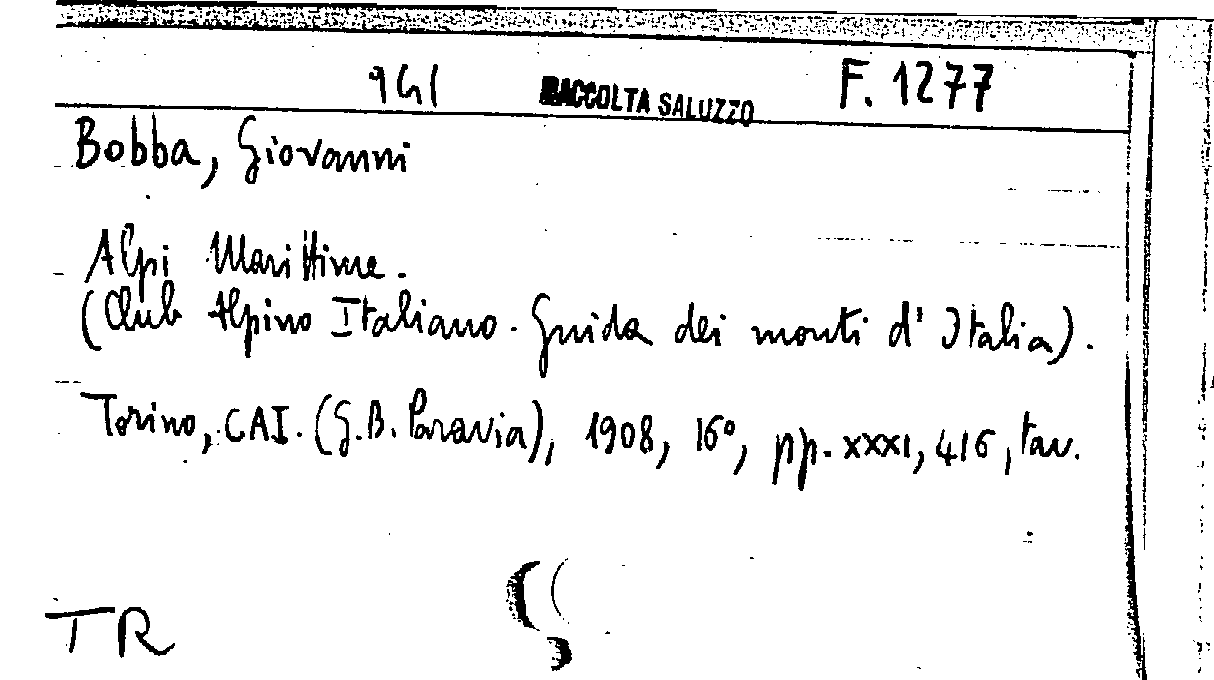 941 RACCOLTA SALUZZO F. 1277
Bobba, Giovanni
Alpi Marittime.
(Club Alpino Italiano. Guida dei monti d'Italia).
Torino, CAI. (G.B. Paravia), 1908, 16°, pp. XXXI, 416, tav.
TR